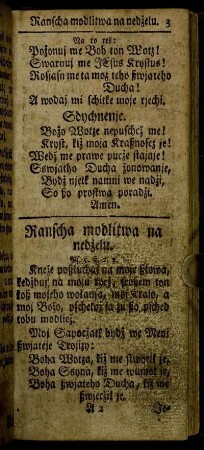 Ranscha modlitwa na nedzelu. 3
Na to reż:
Pożonuj me Boh ton Wotz!
Swarnuj me JEsus Krystus!
Rosjasn me ta moz teho ßwjateho
Ducha!
A wodaj mi schitke moje rjechi.
Sdychnenje.
Bożo Wotze nepuschcż me!
Kryst, kiż moja Kraßnoscż je!
Wedż me prawe pucże stajnje!
Sswjatho Ducha żonowanje,
Bydż njett namni we nadżi,
So ßo prostwa poradżi.
Amen.
Ranscha modlitwa na
nedzelu.
Kneże poßluchaj na moje ßłowa,
kedżbuj na moju rycż, ßłyschem ton
koż mojeho wołanja, moj Kralo, a
moj Bożo, pschetoż ja żu ßo psched
tobu modlicż.
Moj Sapocżatk bydż we Meni
ßwjateje Trojizy:
Boha Wotza, kiż me stworił je,
Boha Ssyna, kiż me wumoż je,
Boha ßwjateho Ducha, kiż me
ßwjecżił je.
A 2 Je-